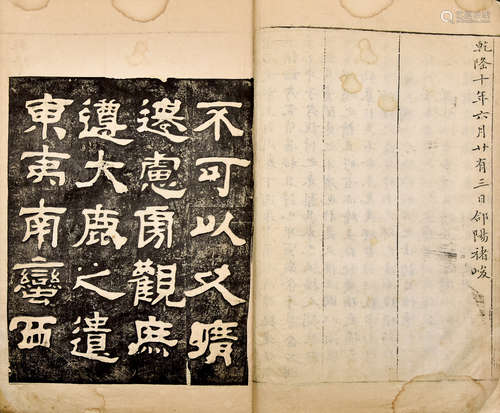 乾隆十年六月廿有三日郃陽褚峻
不可以久曠
遷慮易觀庶
遵大鹿之遺
東夷南蠻西